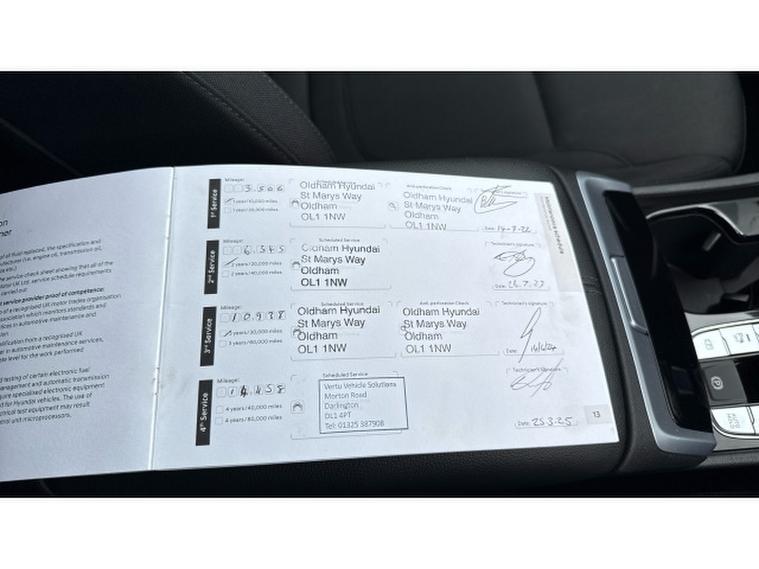 on
ner
d of all fluid replaced, the specification and
nufacturer (i.e. engine oil, transmission oil,
e service check sheet showing that all of the
otor UK Ltd. service schedule requirements
carried out
t service provider proof of competence:
of a recognised UK motor trades organisation
association which monitors standards and
tices in automotive maintenance and
lification from a recognised UK
er in automotive maintenance services,
te level for the work performed
d testing of certain electronic fuel
management and automatic transmission
quire specialised electronic equipment
d for Hyundai vehicles. The use of
ctrical test equipment may result
eral unit microprocessors.
Maintenance schedule
1st Service
Mileage:
3,506
1 year/10,000 miles
1 year/20,000 miles
Scheduled Service
Oldham Hyundai
St Marys Way
Oldham
OL1 1NW
Anti-perforation Check
Oldham Hyundai
St Marys Way
Oldham
OL1 1NW
Technician's signature
Date
2nd Service
Mileage:
6,545
2 years/20,000 miles
2 years/40,000 miles
Scheduled Service
Oldham Hyundai
St Marys Way
Oldham
OL1 1NW
Technician's signature
Date
3rd Service
Mileage:
10,938
3 years/30,000 miles
3 years/60,000 miles
Scheduled Service
Oldham Hyundai
St Marys Way
Oldham
OL1 1NW
Anti-perforation Check
Oldham Hyundai
St Marys Way
Oldham
OL1 1NW
Technician's signature
Date
4th Service
Mileage:
14,458
4 years/40,000 miles
4 years/80,000 miles
Scheduled Service
Vertu Vehicle Solutions
Morton Road
Darlington
DL1 4PT
Tel: 01325 387908
Technician's signature
Date 25.3.25
13